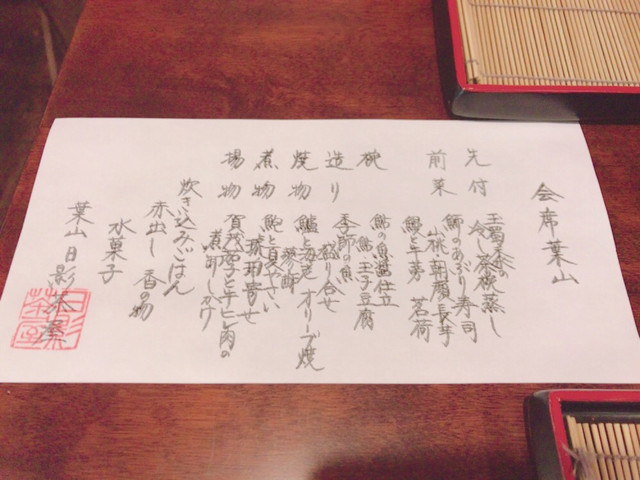 会席葉山
先付
玉蜀黍の
冷し茶碗蒸し
前菜
鰤のあぶり寿司
山桃 朝顔長芋
鰻と牛蒡 茗荷
椀
鮎の魚醤仕立
鮎 玉子豆腐
造り
季節の魚
盛り合せ
焼物
鱸と海老 オリーブ焼
煮物
鮑と夏やさい
琥珀寄せ
揚物
賀茂茄子と牛ヒレ肉の
煮卸しかけ
炊き込みごはん
赤出し 香の物
水菓子
葉山日影茶屋